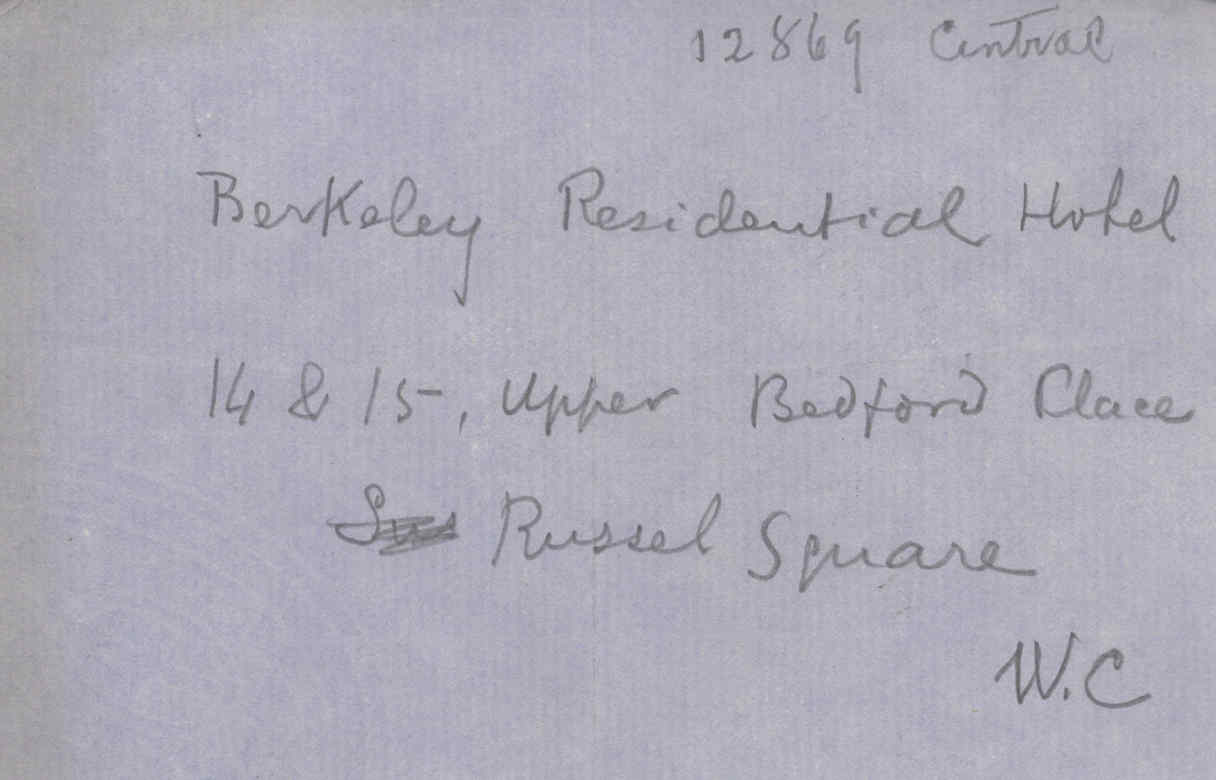 12869 Central
Berkeley Residential Hotel
14 & 15, Upper Bedford Place
Russel Square
W.C